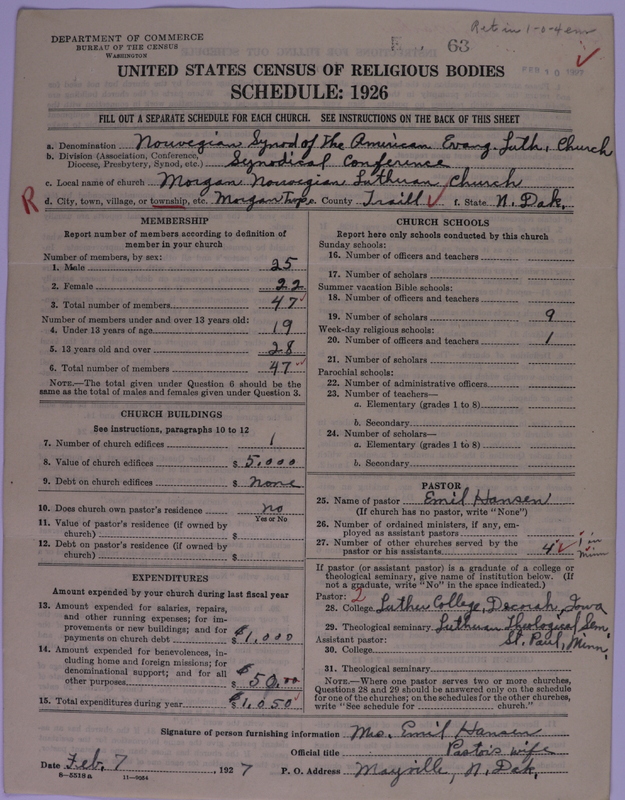 Ret in 1-0-4 em
DEPARTMENT OF COMMERCE
BUREAU OF THE CENSUS
WASHINGTON
E. 63
FEB 10 1927
UNITED STATES CENSUS OF RELIGIOUS BODIES
SCHEDULE: 1926
FILL OUT A SEPARATE SCHEDULE FOR EACH CHURCH. SEE INSTRUCTIONS ON THE BACK OF THIS SHEET
a. Denomination Norwegian Synod of The American Evang. Luth. Church
b. Division (Association, Conference, Diocese, Presbytery, Synod, etc.) Synodical Conference
c. Local name of church Morgan Norwegian Lutheran Church
R d. City, town, village, or township, etc. Morgan Twp. e. County Traill f. State N. Dak.
MEMBERSHIP
Report number of members according to definition of
member in your church
Number of members, by sex:
1. Male 25
2. Female 22
3. Total number of members 47
Number of members under and over 13 years old:
4. Under 13 years of age 19
5. 13 years old and over 28
6. Total number of members 47
NOTE.—The total given under Question 6 should be the
same as the total of males and females given under Question 3.
CHURCH BUILDINGS
See instructions, paragraphs 10 to 12
7. Number of church edifices 1
8. Value of church edifices $ 5,000
9. Debt on church edifices $ none
10. Does church own pastor's residence? no
Yes or No
11. Value of pastor's residence (if owned by
church) $
12. Debt on pastor's residence (if owned by
church) $
EXPENDITURES
Amount expended by your church during last fiscal year
13. Amount expended for salaries, repairs,
and other running expenses; for im-
provements or new buildings; and for
payments on church debt $1,000
14. Amount expended for benevolences, in-
cluding home and foreign missions; for
denominational support; and for all
other purposes $ 50.00
15. Total expenditures during year $1,050
CHURCH SCHOOLS
Report here only schools conducted by this church
Sunday schools:
16. Number of officers and teachers
17. Number of scholars
Summer vacation Bible schools:
18. Number of officers and teachers
19. Number of scholars 9
Week-day religious schools:
20. Number of officers and teachers 1
21. Number of scholars
Parochial schools:
22. Number of administrative officers
23. Number of teachers—
a. Elementary (grades 1 to 8)
b. Secondary
24. Number of scholars—
a. Elementary (grades 1 to 8)
b. Secondary
PASTOR
25. Name of pastor Emil Hansen
(If church has no pastor, write "None")
26. Number of ordained ministers, if any, em-
ployed as assistant pastors
27. Number of other churches served by the
pastor or his assistants 4 1 in Minn
If pastor (or assistant pastor) is a graduate of a college or
theological seminary, give name of institution below. (If
not a graduate, write "No" in the space indicated.)
Pastor: 2
28. College Luther College, Decorah, Iowa
29. Theological seminary Lutheran Theological Sem.
Assistant pastor: St. Paul, Minn.
30. College
31. Theological seminary
NOTE.—Where one pastor serves two or more churches,
Questions 28 and 29 should be answered only on the schedule
for one of the churches; on the schedules for the other churches,
write "See schedule for church."
Signature of person furnishing information Mrs. Emil Hansen
Official title Pastor's wife
Date Feb. 7, 1927 P. O. Address Mayville, N. Dak.
8—5518 a 11—9054